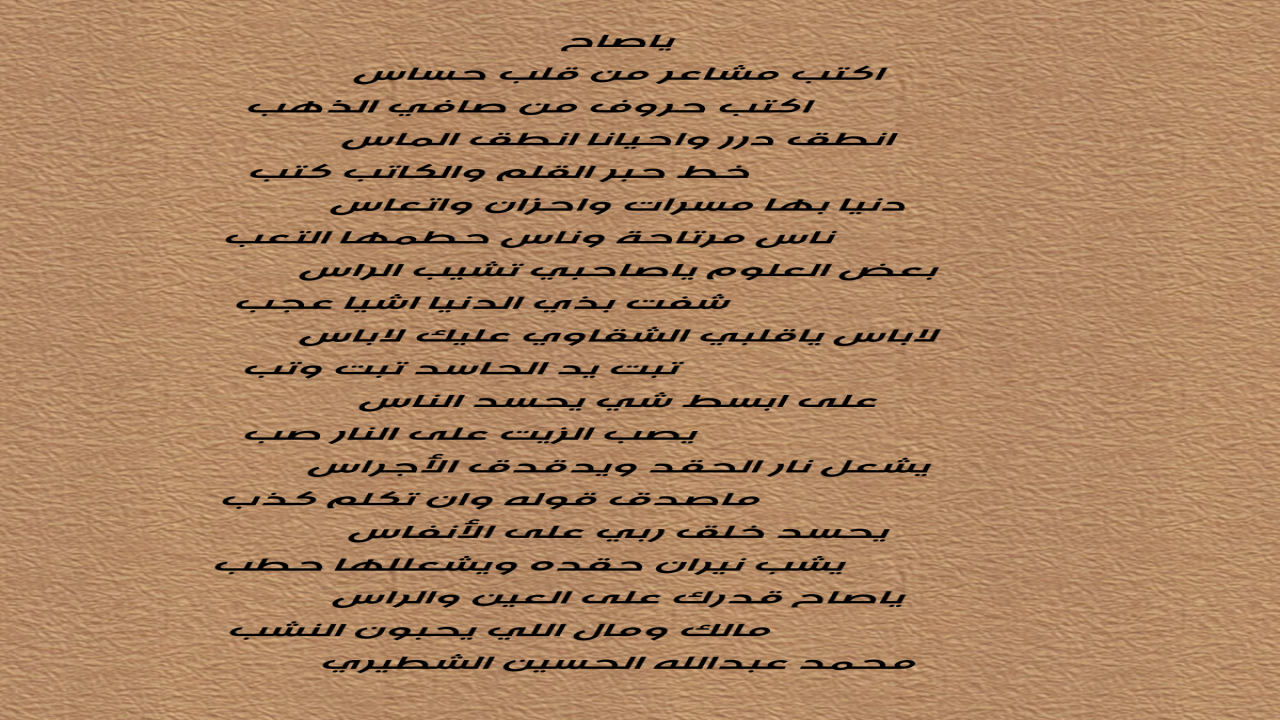 ياصاح
اكتب مشاعر من قلب حساس
اكتب حروف من صافي الذهب
انطق درر واحيانا انطق الماس
خط حبر القلم والكاتب كتب
دنيا بها مسرات واحزان واتعاس
ناس مرتاحة وناس حطمها التعب
بعض العلوم ياصاحبي تشيب الراس
شفت بذي الدنيا اشيا عجب
لاباس ياقلبي الشقاوي عليك لاباس
تبت يد الحاسد تبت وتب
على ابسط شي يحسد الناس
يصب الزيت على النار صب
يشعل نار الحقد ويدقدق الأجراس
ماصدق قوله وان تكلم كذب
يحسد خلق ربي على الأنفاس
يشب نيران حقده ويشعللها حطب
ياصاح قدرك على العين والراس
مالك ومال اللي يحبون النشب
محمد عبدالله الحسين الشطيري